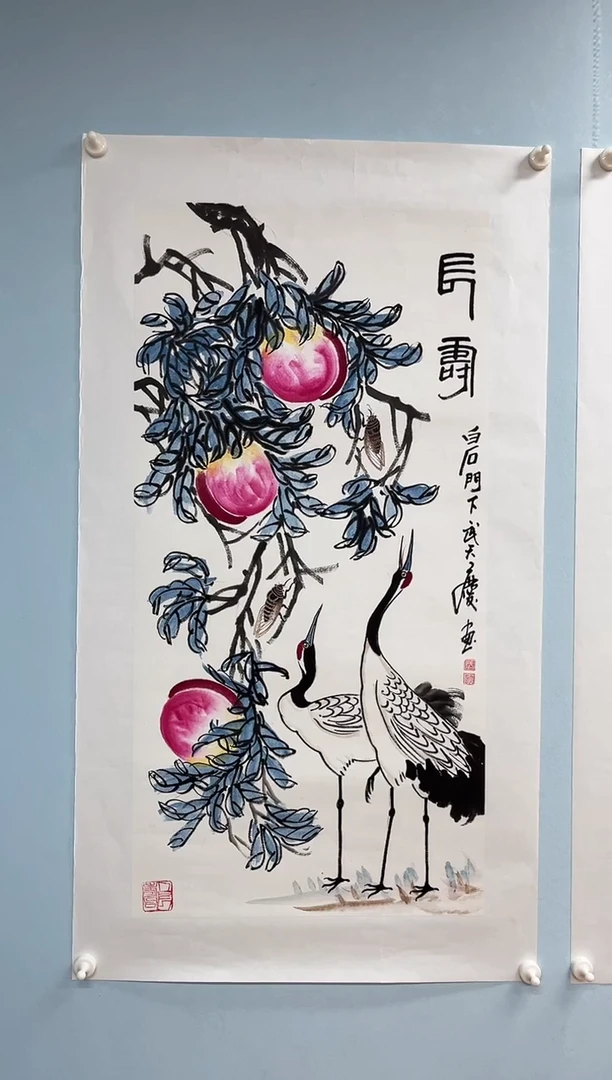 長壽
白石門下武天慶画